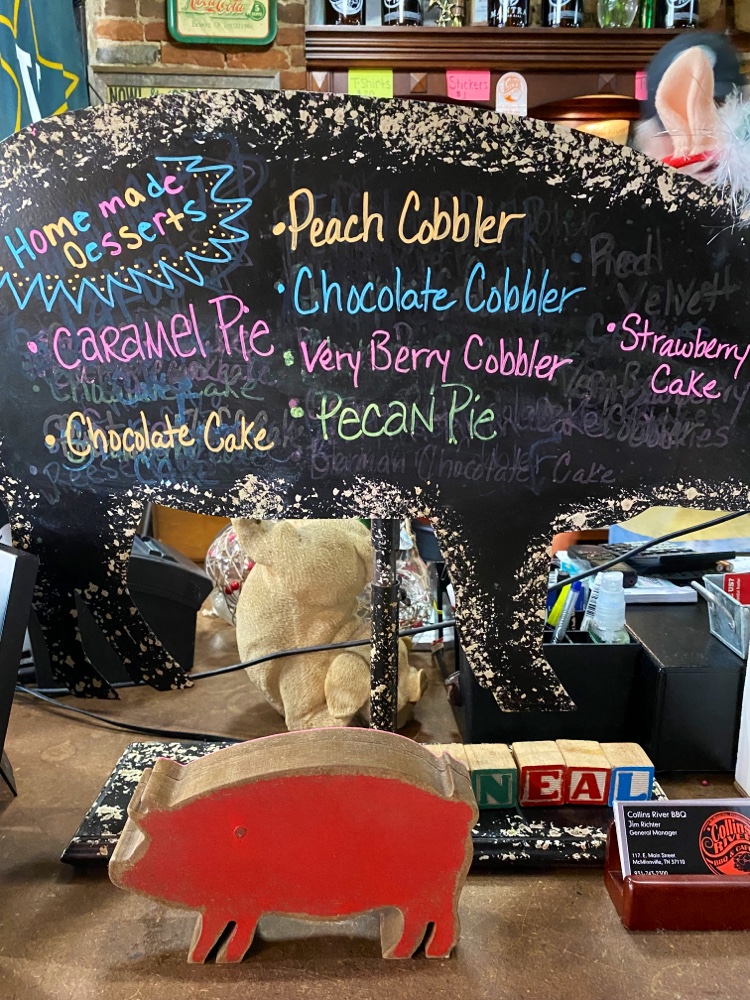 Coca-Cola
T-Shirts
Stickers
Homemade
Desserts
• Peach Cobbler
• Chocolate Cobbler
• CARAMEL Pie
• Very Berry Cobbler
• Strawberry
Cake
• PECAN Pie
• Chocolate Cake
German Chocolate Cake
NEAL
Collins River BBQ
Jim Richter
General Manager
117 E. Main Street
McMinnville, TN 37110
Collins
RIVER
BBQ & CAFE